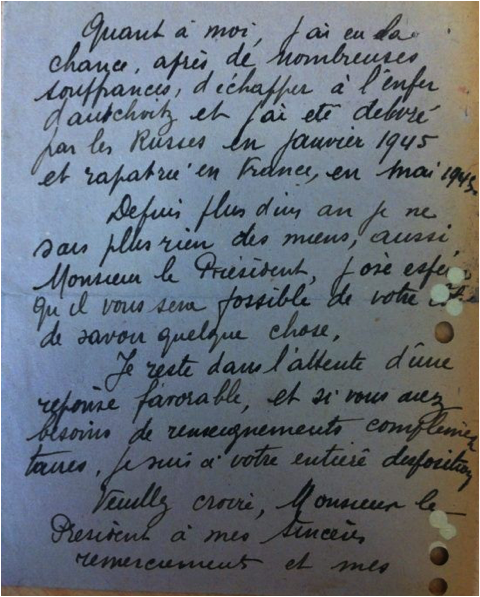 Quant à moi, j'ai eu la
chance, après de nombreuses
souffrances, d'échapper à l'enfer
d'auschvitz et j'ai été
par les Russes en janvier 1945
et rapatrié en France, en mai 1945.
Depuis plus d'un an je ne
sais plus rien des miens, aussi,
Monsieur le Président, j'ose
qu'il vous sera possible de votre
de savoir quelque chose.
Je reste dans l'attente d'une
reponse favorable, et si vous avez
besoins de renseignements complémen
taires, je suis à votre entière disposition
Veuillez croire, Monsieur le
President à mes sincères
remerciements et mes